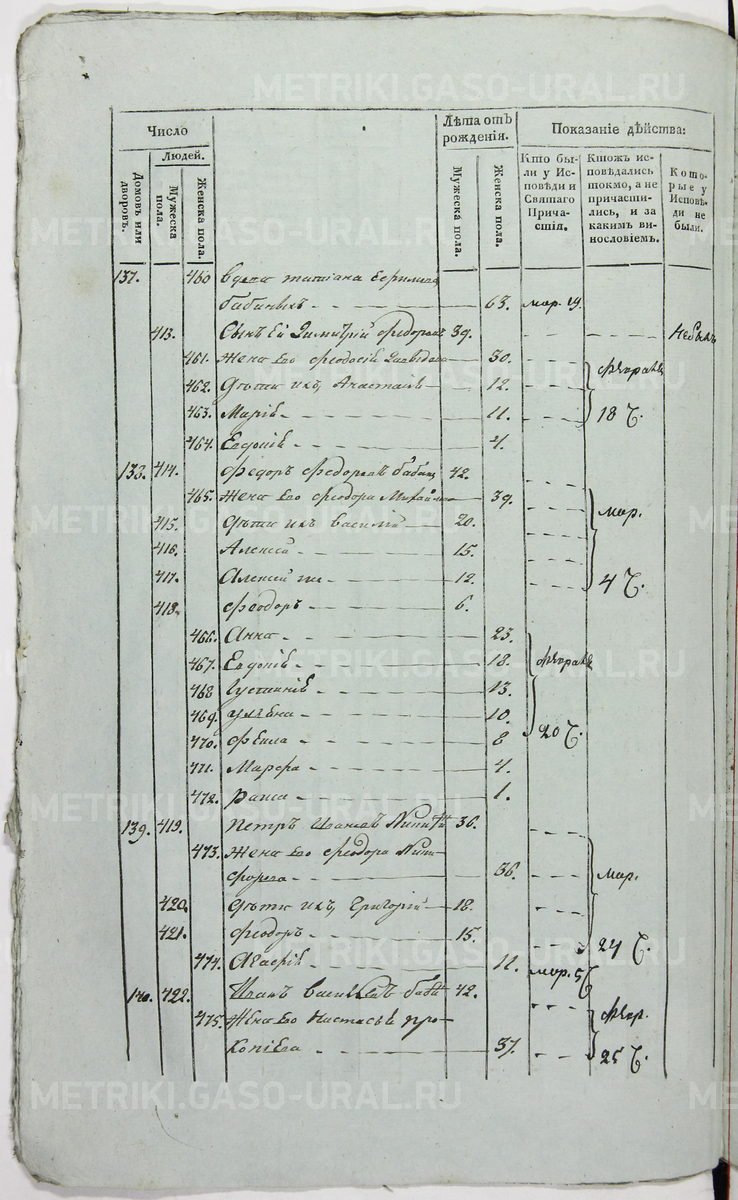 Число
Людей.
Домовъ или дворовъ.
Мужеска пола.
Женска пола.
Лѣта отъ рожденія.
Мужеска пола.
Женска пола.
Показаніе дѣйства:
Кто были у Исповѣди и Святаго Причастія.
Ктожъ исповѣдались токмо, а не причастились, и за какимъ винословіемъ.
Которые у Исповѣди не были.
137. 460 Вдова Татіана
63. мар. 19.
413. Сынъ Ея Димитрій Федоровъ 39. Небылъ
461. Жена Его Феодосія 30.
462. Дѣти ихъ, Анастасія 12.
463. Марія 11. 18 Ч.
464. Евдокія 4.
414. Федоръ Федоровъ 42.
465. Жена Его Феодора Михайлова 39. мар.
415. Дѣти ихъ Василій 20.
416. Алексѣй 15.
417. Алексѣй же 12. 4 Ч.
418. Феодоръ 6.
466. Анна 23.
467. Евдокія 18.
468 Іустинія 13.
469. Уліяна 10.
470. Фекла 8 20 Ч.
471. Марфа 4.
472. Раиса 1.
139. 419. Петръ Ивановъ 36.
473. Жена Его Феодора Ники-
форова 36. мар.
420. Дѣти ихъ, Григорій 18.
421. Феодоръ 15. 24 Ч.
474. Агафія 11. мар. 5 Ч
140. 422. Иванъ Васильевъ 42.
475. Жена Его Настасья Про-
копіева 37. 25 Ч.
METRIKI.GASO-URAL.RU